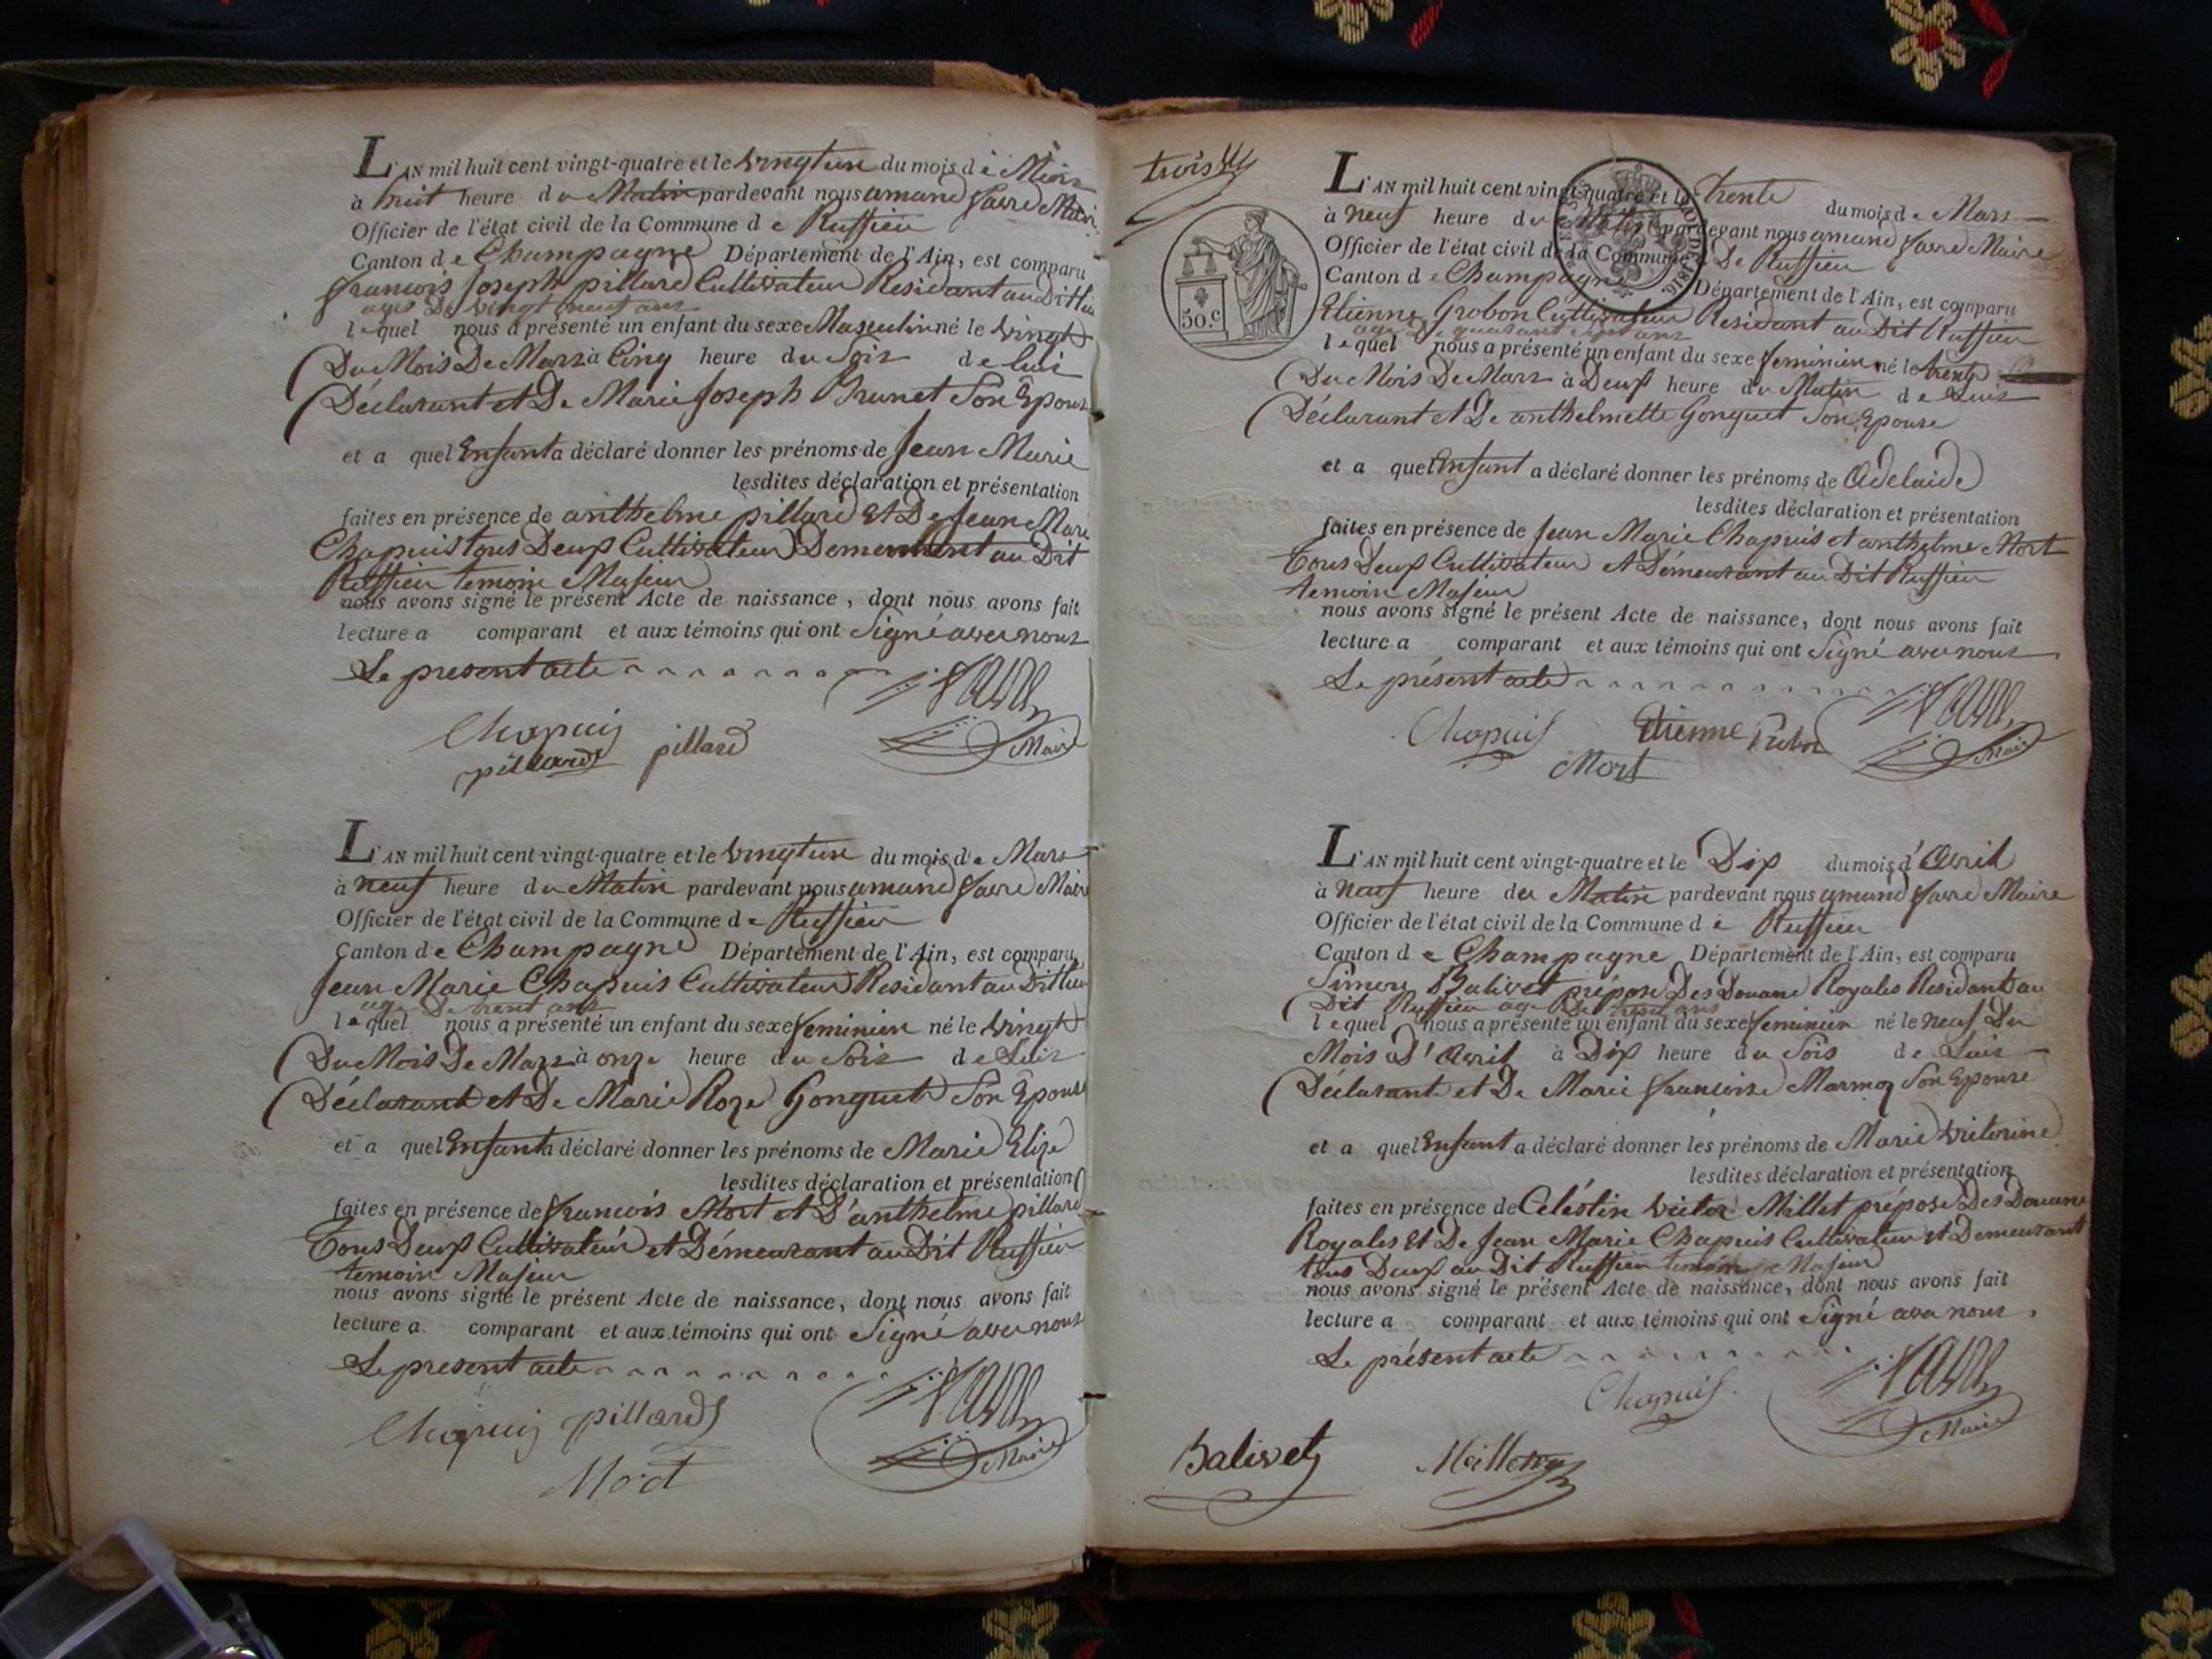 L'AN mil huit cent vingt-quatre et le vingt un du mois de Mars
à huit heure du Matin pardevant nous amand favre Maire
Officier de l'état civil de la Commune de Ruffieu
Canton de Champagne Département de l'Ain, est comparu
francois Joseph pillard Cultivateur Residant au Dit lieu
age De vingt neuf ans
lequel nous a présenté un enfant du sexe Masculin né le vingt
Du Mois De Mars à Cinq heure du Soir de lui
Déclarant et De Marie Joseph Brunet Son Epouse
et a quel Enfant a déclaré donner les prénoms de Jean Marie
lesdites déclaration et présentation
faites en présence de anthelme pillard Et De Jean Marie
Chapuis tous Deux Cultivateur Demeurant au Dit
Ruffieu temoin Majeur
nous avons signé le présent Acte de naissance, dont nous avons fait
lecture a comparant et aux témoins qui ont Signé avec nous
Le present acte
Chapuis
pillard pillard
favre
Maire
L'AN mil huit cent vingt-quatre et le vingt un du mois de Mars
à neuf heure du Matin pardevant nous amand favre Maire
Officier de l'état civil de la Commune de Ruffieu
Canton de Champagne Département de l'Ain, est comparu
Jean Marie Chapuis Cultivateur Residant au Dit lieu
age De trent ans
lequel nous a présenté un enfant du sexe feminin né le vingt
Du Mois De Mars à onze heure du Soir de Luis
Déclarant et De Marie Roze Gonguet Son Epouse
et a quel Enfant a déclaré donner les prénoms de Marie Elize
lesdites déclaration et présentation
faites en présence de francois Mort et D'anthelme pillard
Tous Deux Cultivateur et Démeurant au Dit Ruffieu
temoin Majeur
nous avons signé le présent Acte de naissance, dont nous avons fait
lecture a comparant et aux témoins qui ont Signé avec nous
Le present acte
Chapuis pillard
Mort
favre
Maire
trois
50.c
1816
L'AN mil huit cent vingt-quatre et le trente du mois de Mars
à neuf heure du Matin pardevant nous amand favre Maire
Officier de l'état civil de la Commune De Ruffieu
Canton de Champagne Département de l'Ain, est comparu
Etienne Grobon Cultivateur Residant au Dit Ruffieu
age De quarant ans
lequel nous a présenté un enfant du sexe feminin né le trente
Du Mois De Mars à Deux heure du Matin de Luis
Déclarant et De anthelmette Gonguet Son Epouse
et a quel Enfant a déclaré donner les prénoms de Adelaide
lesdites déclaration et présentation
faites en présence de Jean Marie Chapuis et anthelme Mort
Tous Deux Cultivateur et Démeurant au Dit Ruffieu
temoin Majeur
nous avons signé le présent Acte de naissance, dont nous avons fait
lecture a comparant et aux témoins qui ont Signé avec nous
Le présent acte
Chapuis Etienne
Mort
favre
Maire
L'AN mil huit cent vingt-quatre et le Dix du mois d'Avril
à Neuf heure du Matin pardevant nous amand favre Maire
Officier de l'état civil de la Commune de Ruffieu
Canton de Champagne Département de l'Ain, est comparu
Balivet préposé Des Douane Royales Residant au
Dit Ruffieu age De ans
lequel nous a présenté un enfant du sexe feminin né le neuf Du
Mois D'Avril à Dix heure du Soir de Luis
Déclarant et De Marie francoise Marmoz Son Epouse
et a quel Enfant a déclaré donner les prénoms de Marie victorine
lesdites déclaration et présentation
faites en présence de Celéstin victor Millet préposé Des Douane
Royales Et De Jean Marie Chapuis Cultivateur et Demeurant
tous Deux au Dit Ruffieu temoin Majeur
nous avons signé le présent Acte de naissance, dont nous avons fait
lecture a comparant et aux témoins qui ont Signé avec nous
Le présent acte
Chapuis
favre
Maire
Balivet